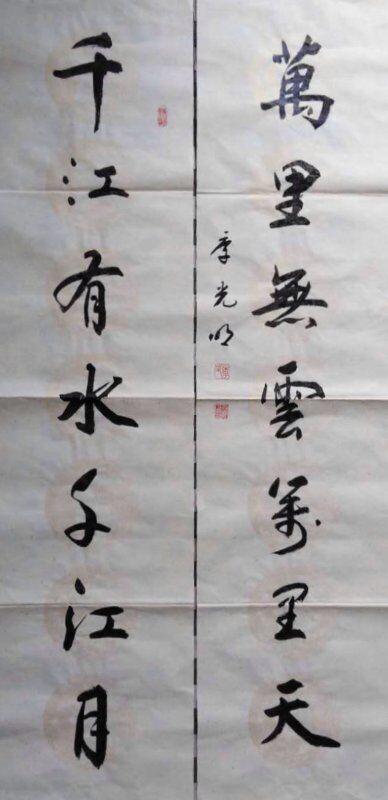 千江有水千江月
萬里無雲萬里天
季光明